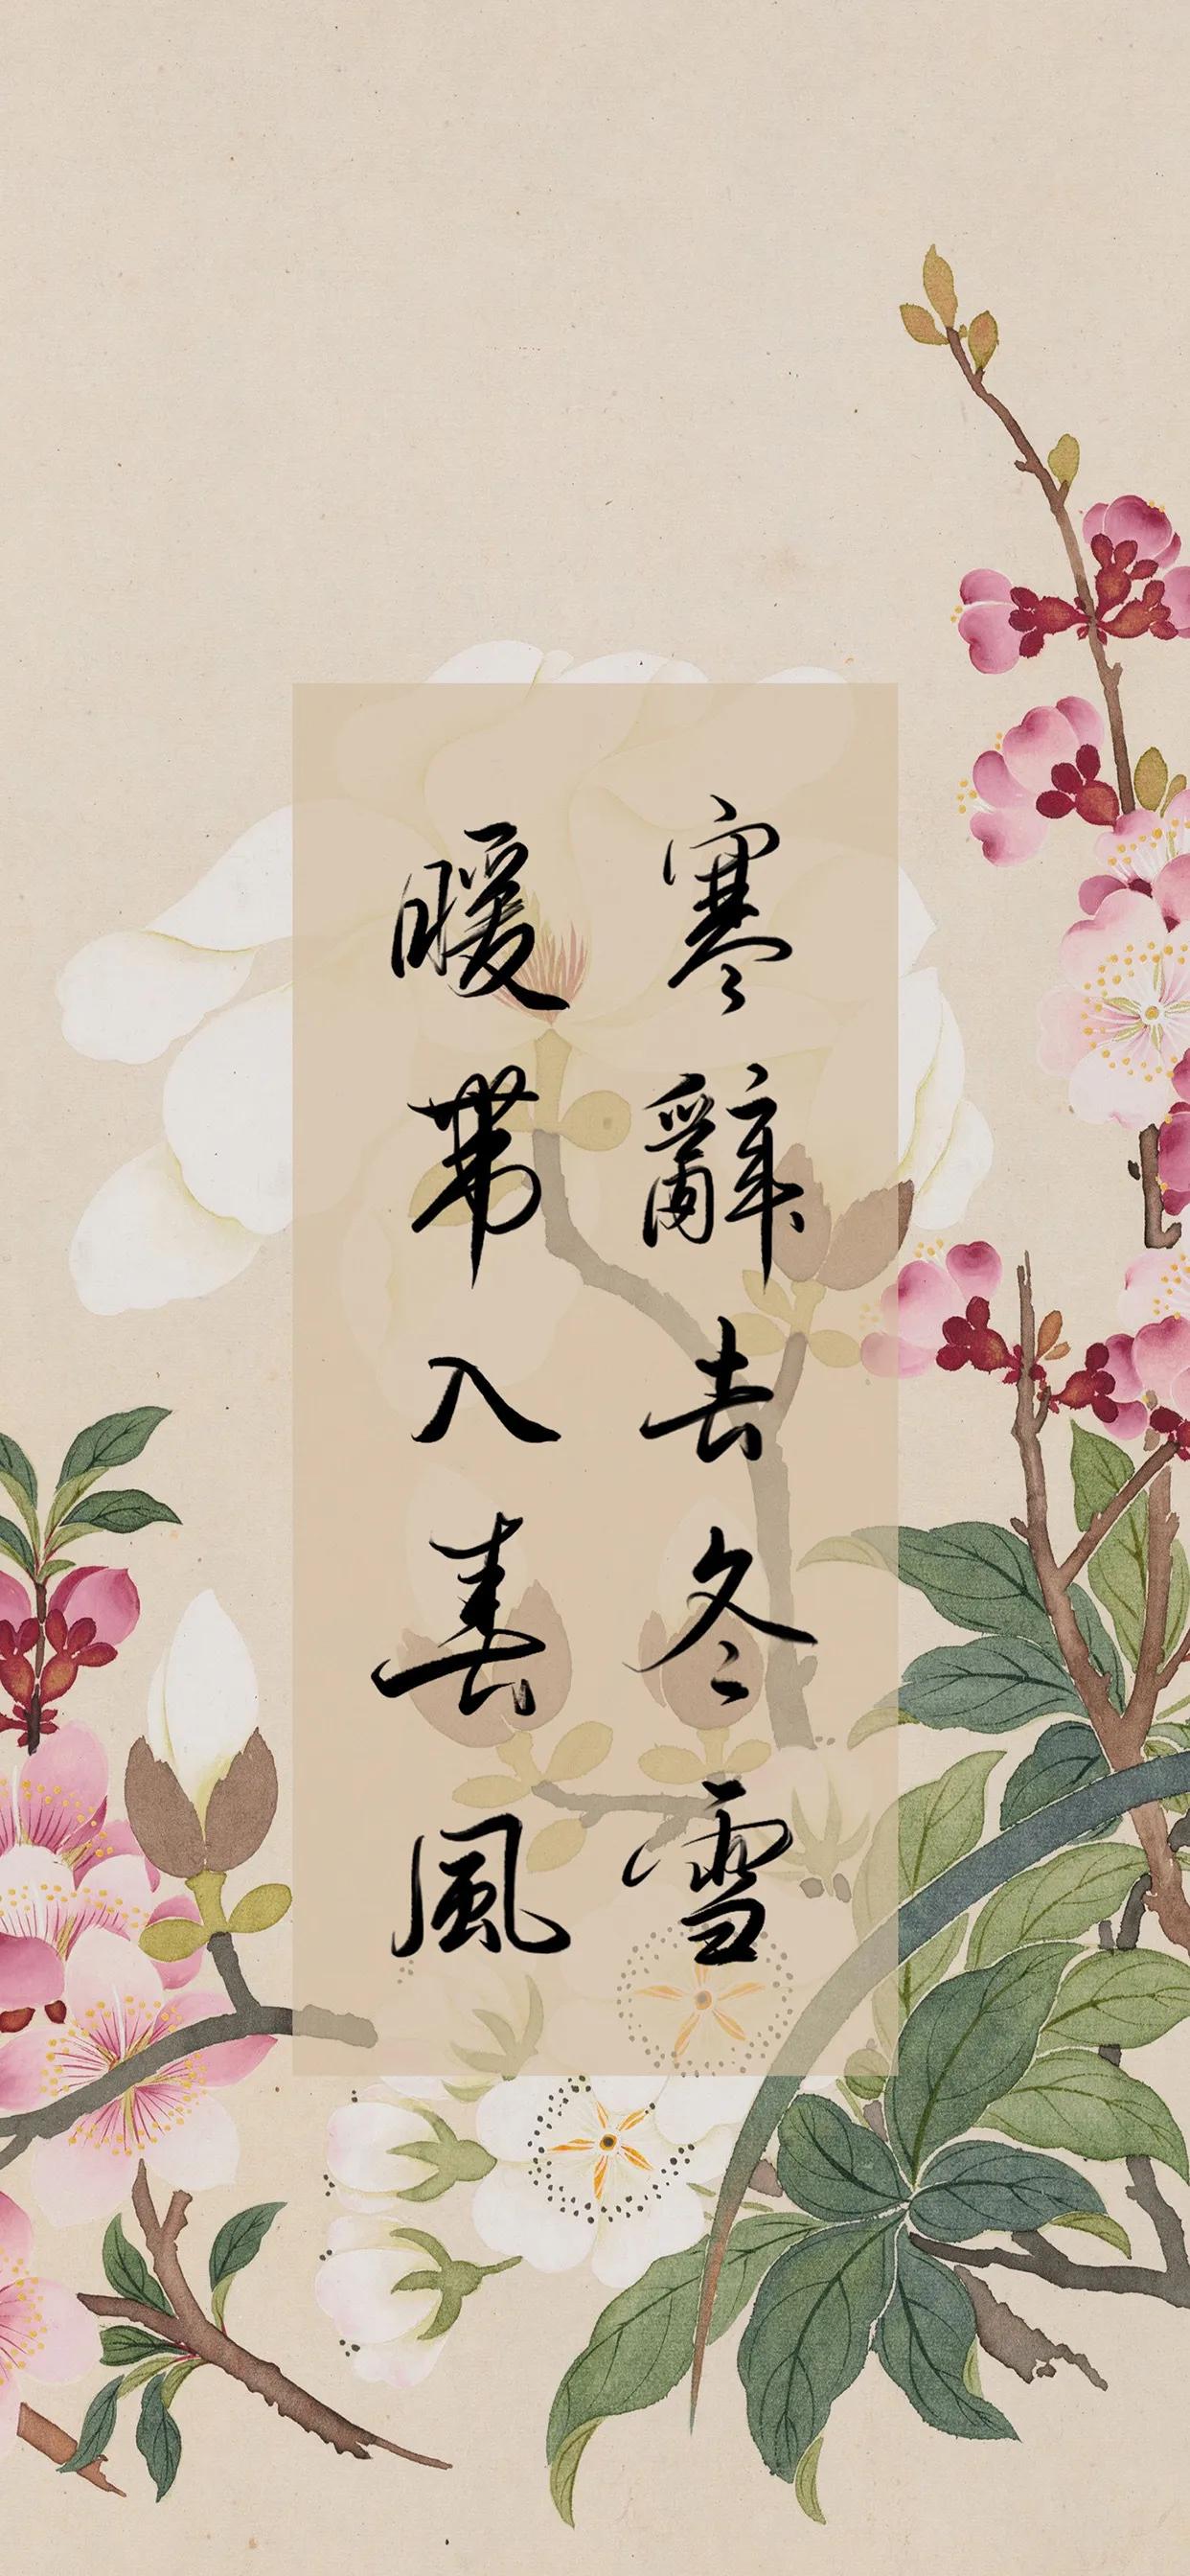 寒辭去冬雪
暖帶入春風